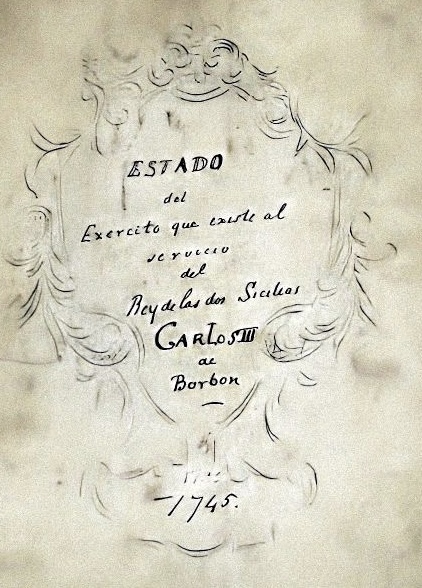 ESTADO
del
Exercito que existe al
servicio
del
Rey de las dos Sicilias
CARLOS III
de
Borbon
1745.